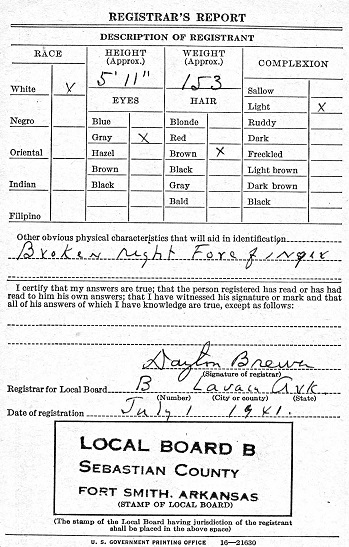 REGISTRAR'S REPORT
DESCRIPTION OF REGISTRANT
RACE HEIGHT (Approx.) WEIGHT (Approx.) COMPLEXION
5' 11" 153
White X Sallow
EYES HAIR Light X
Negro Blue Blonde Ruddy
Gray X Red Dark
Oriental Hazel Brown X Freckled
Brown Black Light brown
Indian Black Gray Dark brown
Bald Black
Filipino
Other obvious physical characteristics that will aid in identification
Broken right Forefinger
I certify that my answers are true; that the person registered has read or has had
read to him his own answers; that I have witnessed his signature or mark and that
all of his answers of which I have knowledge are true, except as follows:
Dayton Brewer
(Signature of registrar)
Registrar for Local Board B Lavaca Ark.
(Number) (City or county) (State)
Date of registration July 1 1941.
LOCAL BOARD B
SEBASTIAN COUNTY
FORT SMITH, ARKANSAS
(STAMP OF LOCAL BOARD)
(The stamp of the Local Board having jurisdiction of the registrant
shall be placed in the above space)
U. S. GOVERNMENT PRINTING OFFICE 16—21630